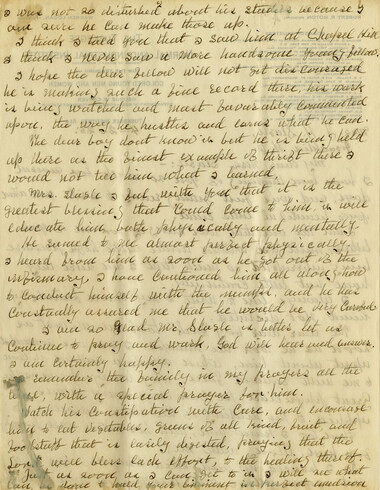 I was not so disturbed about his studies because I
am sure he can make those up.
I think I told you that I saw him at Chapel Hill
I think I never saw a more handsome young fellow.
I hope the dear fellow will not get discouraged
he is making such a fine record there, his work
is being watched and most favorably commented
upon, the way he hustles and earns what he can.
The dear boy dont know it but he is being held
up there as the finest example of thrift there I
would not tell him what I learned.
Mrs. I feel with you that it is the
greatest blessing that could come to him it will
educate him both physically and mentally.
He seemed to me almost perfect physically.
I heard from him as soon as he got out of the
infirmary, I have cautioned him all along how
to conduct himself with the and he has
constantly assured me that he would be very careful.
I am so glad Mr. is better, let us
continue to pray and work, God will hear and answer.
I am certainly happy.
I remember the family in my prayers all the
time, with a special prayer for him.
Watch his constipation with care, and encourage
him to eat vegetables, greens of all kind, fruit and
foodstuff that is easily digested, praying that the
Lord will bless each effort, to the healing thereof.
Just as soon as I can get to it I will see what
can be done to hold your in perfect